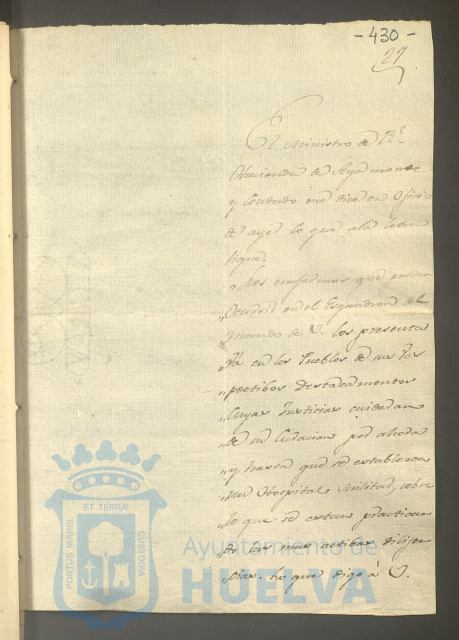 - 430 -
27
El Ministro de Rl.
Hacienda de Ayamonte
y Condado me dice en Oficio
de ayer lo que ala letra
sigue.
"Los enfermos que puedan
"ocurrir en el Esquadron del
"mando de V. los presenta
"rá en los Pueblos de sus res
"pectibos Destacamentos
"Cuyas Justicias cuidaran
"de su Curacion por ahora
"y hasta que se establezca
"un Hospital Militar, sobre
"lo que se estan practican
"do las mas actibas dilijen
"cias. Lo que digo á V.
PORTUS MARIS
ET TERRÆ
CUSTODIA
Ayuntamiento de
HUELVA